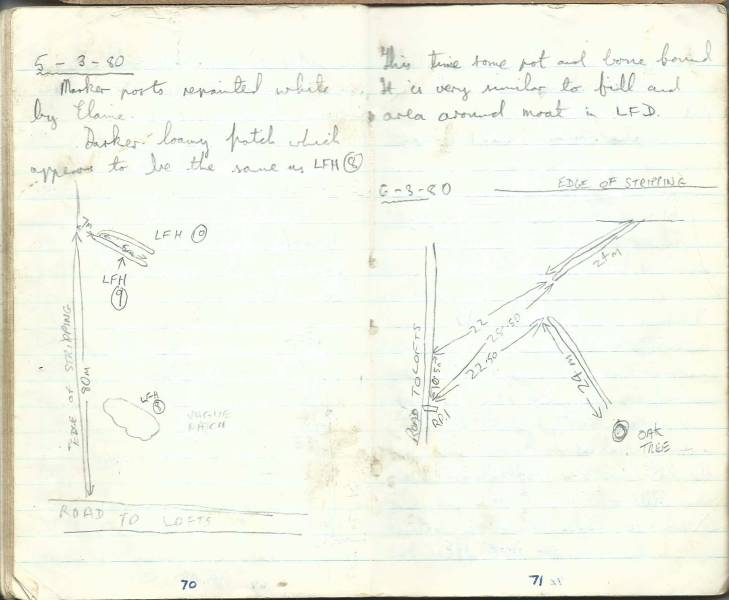 5-3-80
Marker posts repainted white
by Elaine.
Darker loamy patch which
appears to be the same as LFH 8
7m
LFH 10
5m
LFH
9
EDGE OF STRIPPING
80M
LFH
VAGUE
PATCH
ROAD TO LOFTS
70
This time some pot and bone found
It is very similar to fill and
area around moat in LFD.
6-3-80
EDGE OF STRIPPING
24m
22
28.50
22.50
ROAD TO LOFTS
10.5m
RP.1
24m
OAK
TREE
71